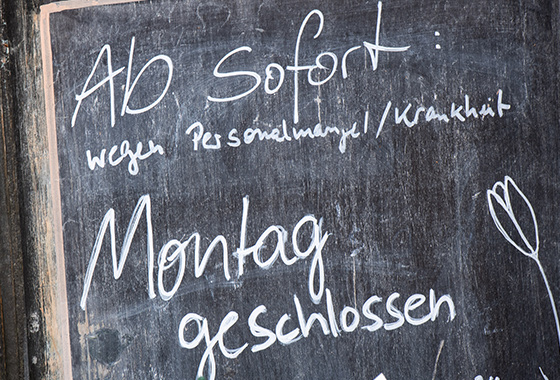 Ab Sofort:
wegen Personalmangel/Krankheit
Montag
geschlossen